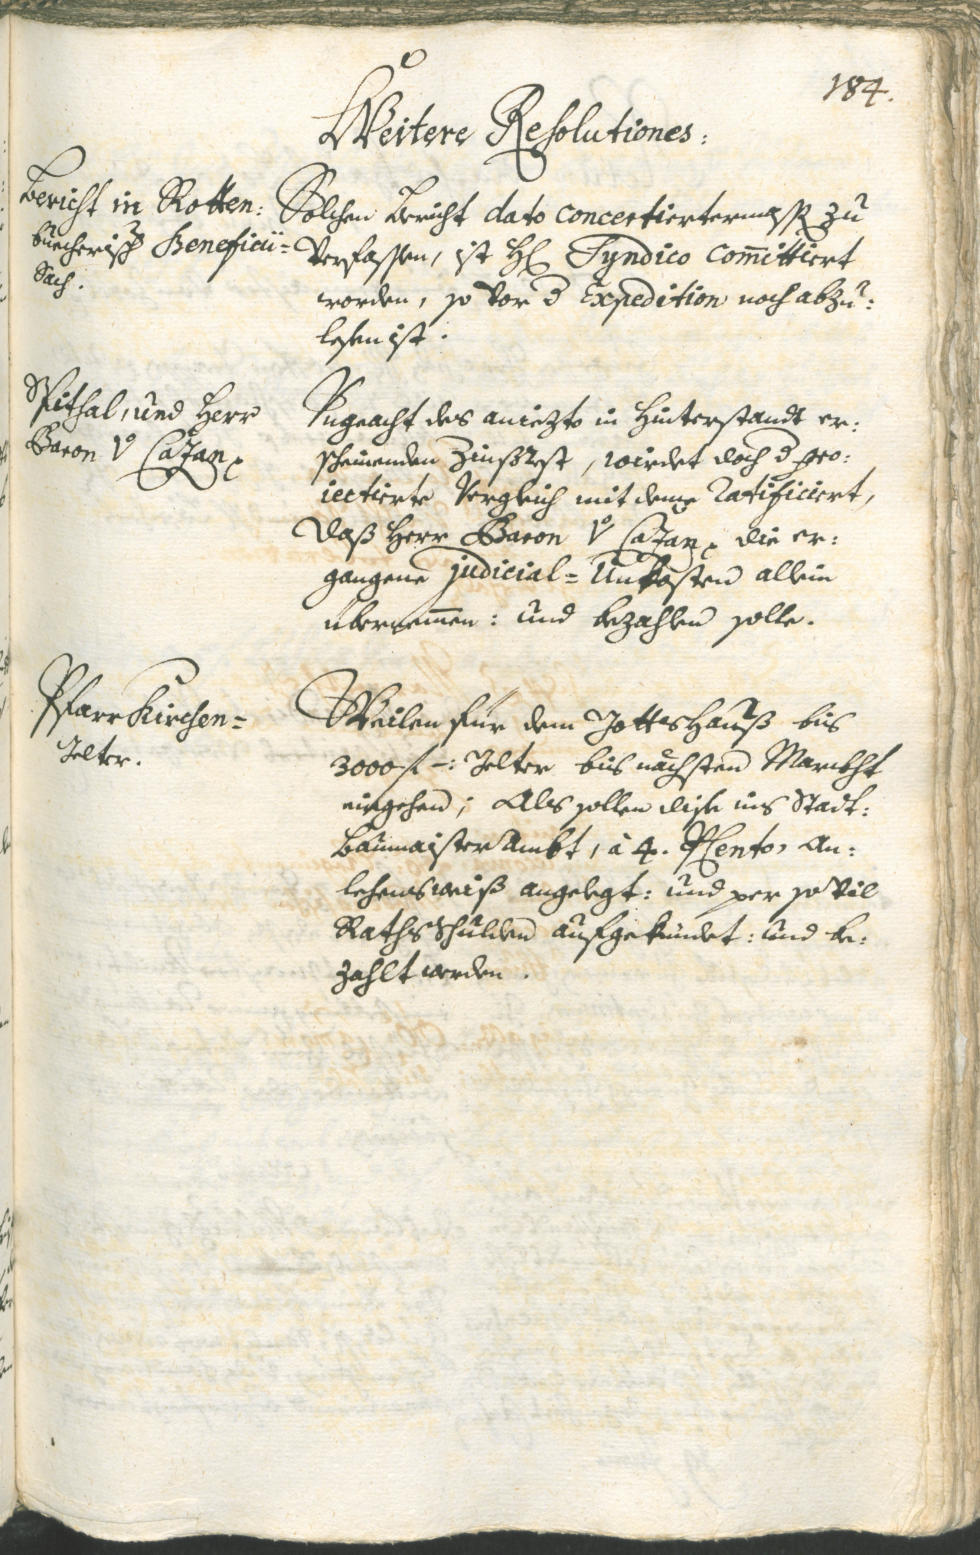 184.
Weitere Resolutiones:
Bericht in Rotten:
buecherisch Beneficii=
Sach.
Solchen Bericht dato concertiertermassen zu
verfassen, ist H: Syndico com̅ittiert
worden, so vor d Expedition noch abzu:
lesen ist.
Spithal, und Herr
Baron V Cazan
Vngeacht des aniezto in Hinterstandt er:
scheinenden Zinßrest, wirdet doch d pro:
iectierte Vergleich mit deme ratificiert,
Daß Herr Baron V Cazan die er:
gangene judicial=Unkosten allein
übernem̅en: und bezahlen solle.
PfarrKirchen=
Gelter.
Weilen für dem GottsHauß bis
3000 f –: Gelter bis nächsten Marckht
eingehen; Als sollen dise ins Stadt:
BaumaisterAmbt, à 4. P Cento, An:
lehensweiß angelegt: und per so vil
Rathsschulden aufgekündet: und be:
zahlt werden.